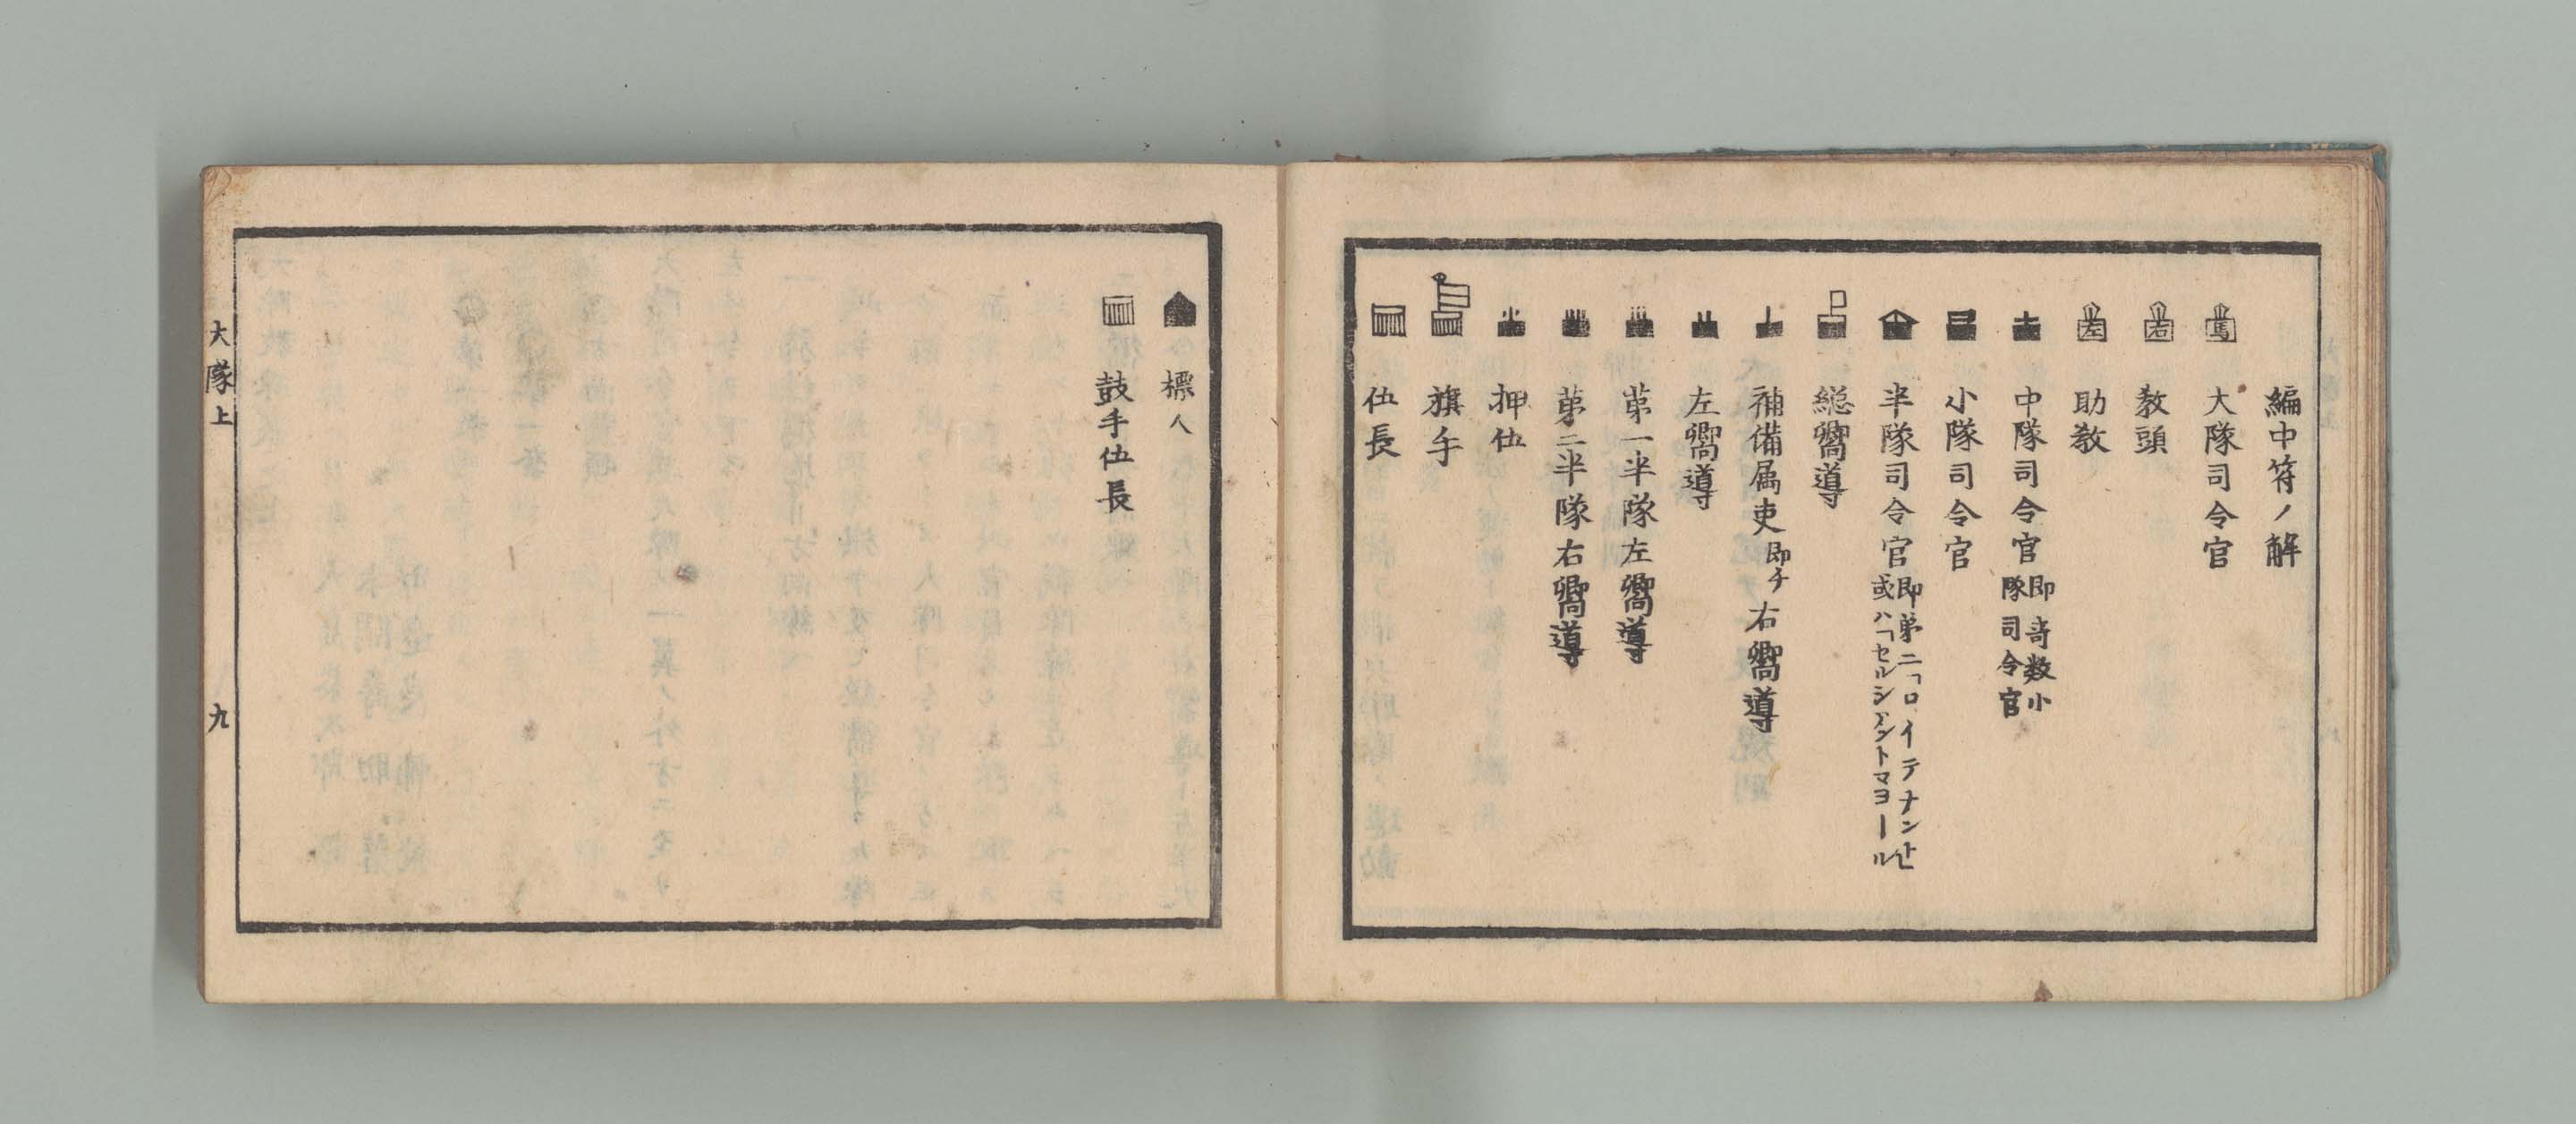 編中符ノ解
馬 大隊司令官
右 教頭
左 助教
中隊司令官 即奇数小隊司令官
小隊司令官
半隊司令官 即第二「ロイテナント」或ハ「セルシアントマヨール
総嚮導
補備属吏 即チ 右嚮導
左嚮導
第一半隊左嚮導
第二半隊右嚮導
押伍
旗手
伍長
標人
鼓手伍長
大隊上
九